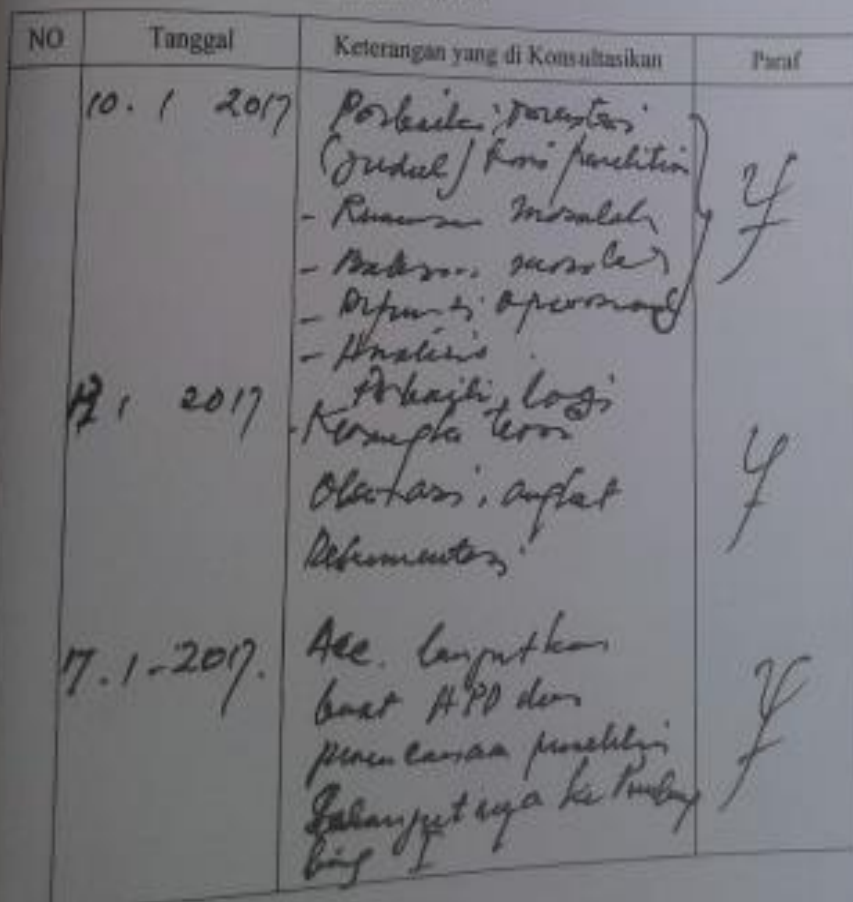 NO Tanggal Keterangan yang di Konsultasikan Paraf
10. 1 2017 Perbaiki
(judul) penelitian
- Rumusan masalah
- Batasan masalah
- Definisi operasional
- Analisis
1 2017 Perbaiki lagi
- Kerangka teori
Observasi, angket
Dokumentasi
17.1-2017. Acc. lanjutkan
buat APD dan
penelitian
Selanjutnya ke Pembim
bing I